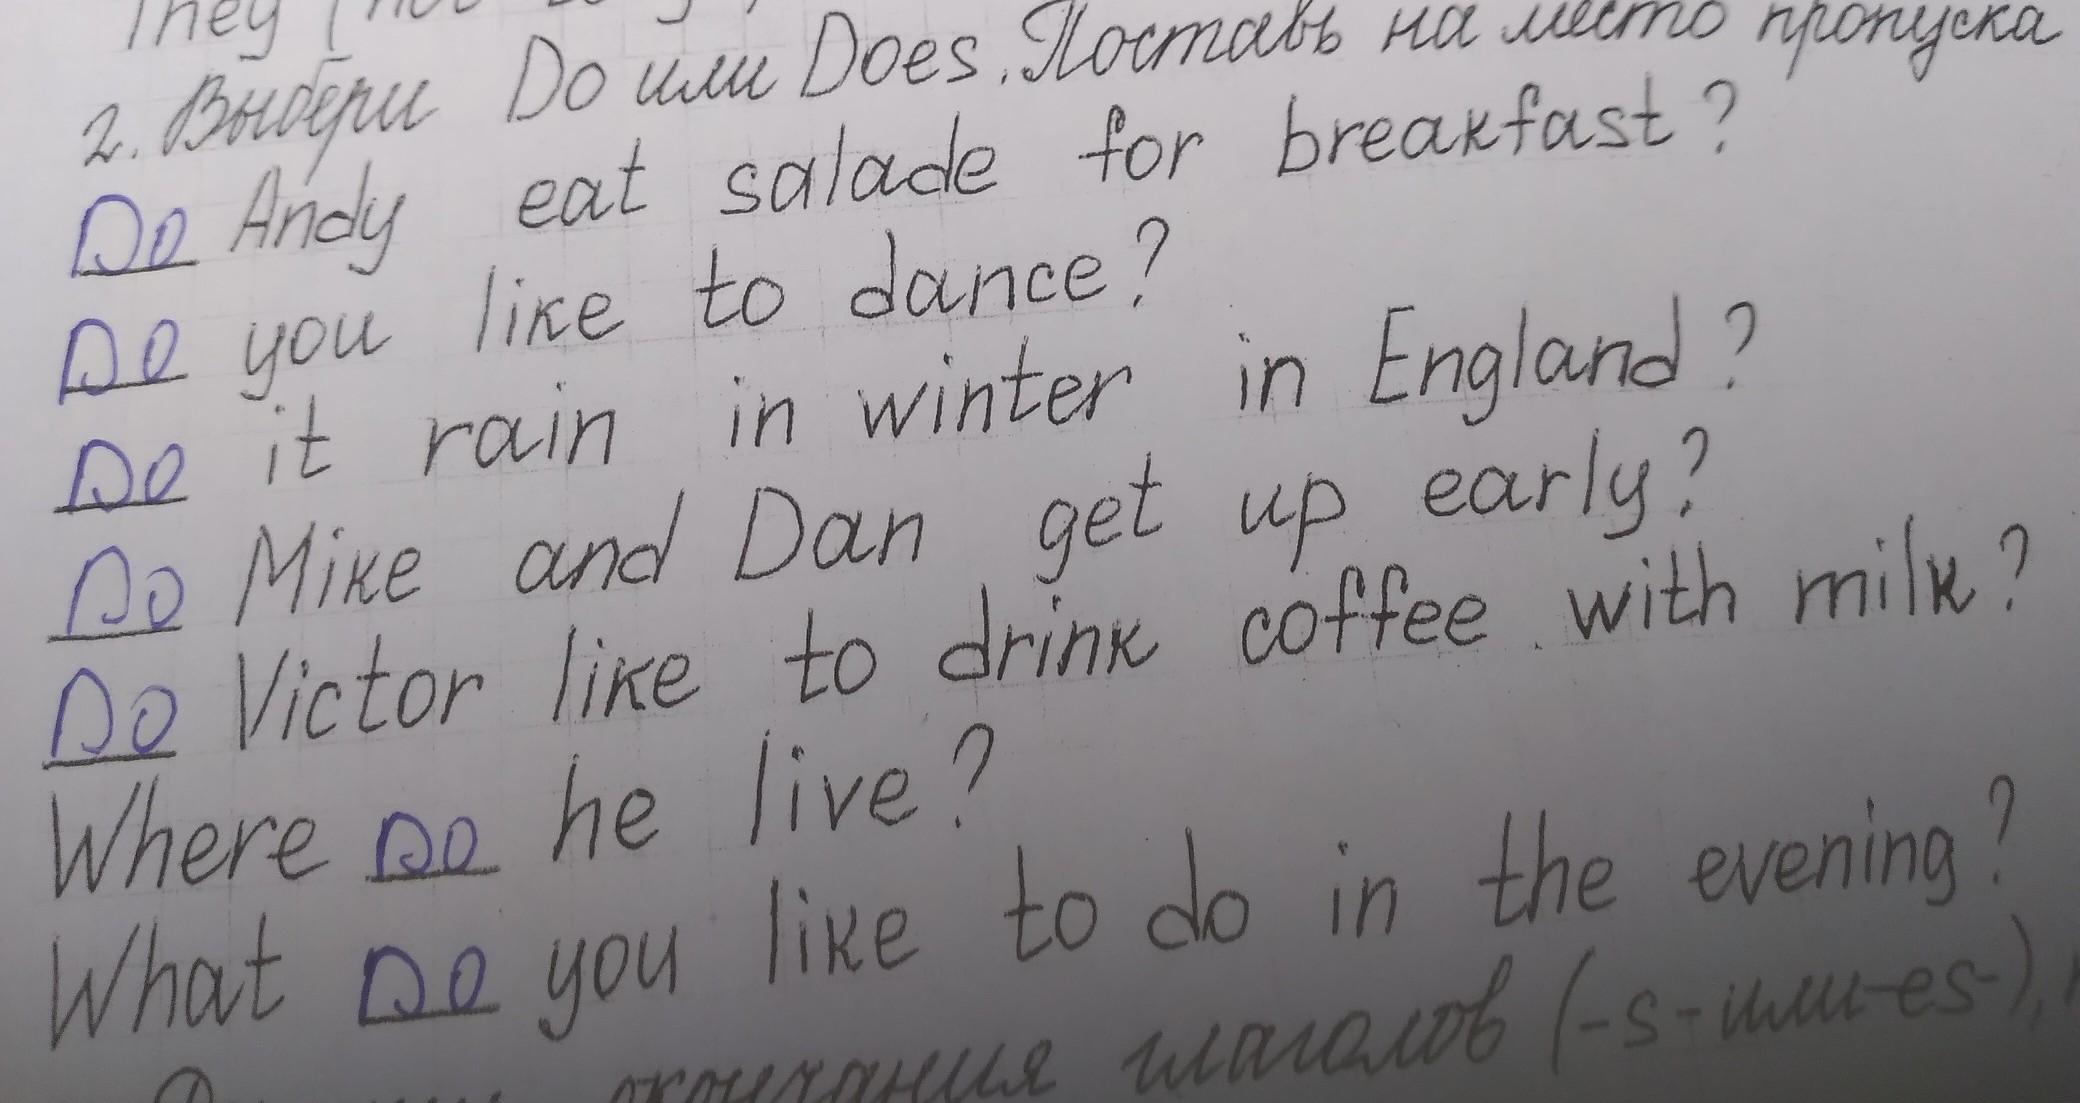 They (not
2. Выбери Do или Does. Поставь на место пропуска
Do Andy eat salade for breakfast?
Do you like to dance?
Do it rain in winter in England?
Do Mike and Dan get up early?
Do Victor like to drink coffee with milk?
Where Do he live?
What Do you like to do in the evening?
окончания глаголов (-s- или -es-),